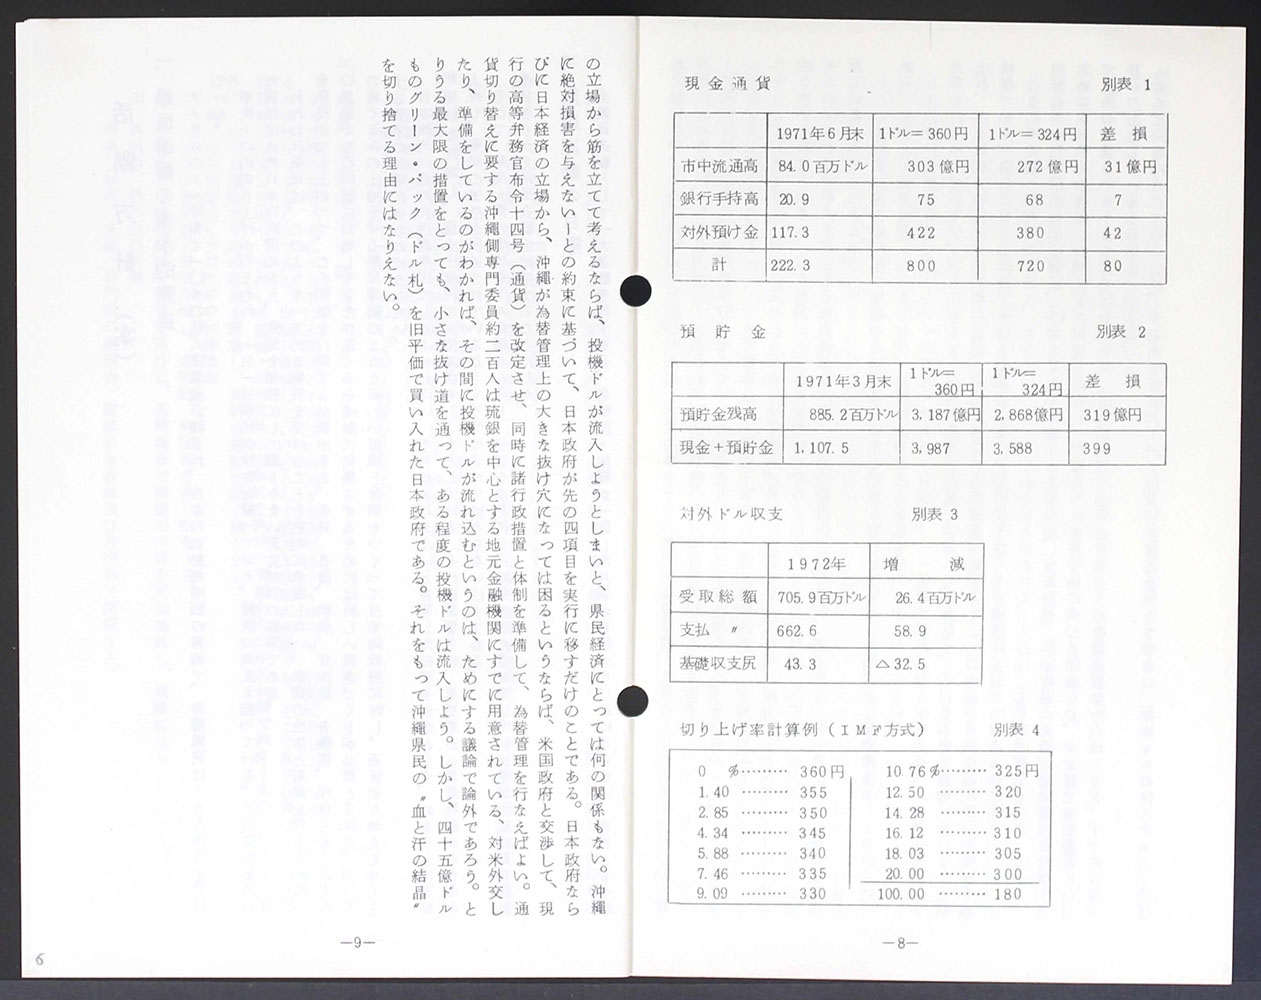 現金通貨　別表 1
1971年6月末　1ドル＝360円　1ドル＝324円　差損
市中流通高　84.0百万ドル　303億円　272億円　31億円
銀行手持高　20.9　75　68　7
対外預け金　117.3　422　380　42
計　222.3　800　720　80
預貯金　別表 2
1971年3月末　1ドル＝360円　1ドル＝324円　差損
預貯金残高　885.2百万ドル　3,187億円　2,868億円　319億円
現金＋預貯金　1,107.5　3,987　3,588　399
対外ドル収支　別表 3
1972年　増減
受取総額　705.9百万ドル　26.4百万ドル
支払　〃　662.6　58.9
基礎収支尻　43.3　△32.5
切り上げ率計算例（IMF方式）　別表 4
0　%………　360円　10.76%………　325円
1.40　………　355　12.50　………　320
2.85　………　350　14.28　………　315
4.34　………　345　16.12　………　310
5.88　………　340　18.03　………　305
7.46　………　335　20.00　………　300
9.09　………　330　100.00　………　180
—8—
の立場から筋を立てて考えるならば、投機ドルが流入しようとしまいと、県民経済にとっては何の関係もない。沖縄
に絶対損害を与えない—との約束に基づいて、日本政府が先の四項目を実行に移すだけのことである。日本政府なら
びに日本経済の立場から、沖縄が為替管理上の大きな抜け穴になっては困るというならば、米国政府と交渉して、現
行の高等弁務官布令十四号（通貨）を改定させ、同時に諸行政措置と体制を準備して、為替管理を行なえばよい。通
貨切り替えに要する沖縄側専門委員約二百人は琉銀を中心とする地元金融機関にすでに用意されている、対米外交し
たり、準備をしているのがわかれば、その間に投機ドルが流れ込むというのは、ためにする議論で論外であろう。と
りうる最大限の措置をとっても、小さな抜け道を通って、ある程度の投機ドルは流入しよう。しかし、四十五億ドル
ものグリーン・バック（ドル札）を旧平価で買い入れた日本政府である。それをもって沖縄県民の〝血と汗の結晶〟
を切り捨てる理由にはなりえない。
—9—
6